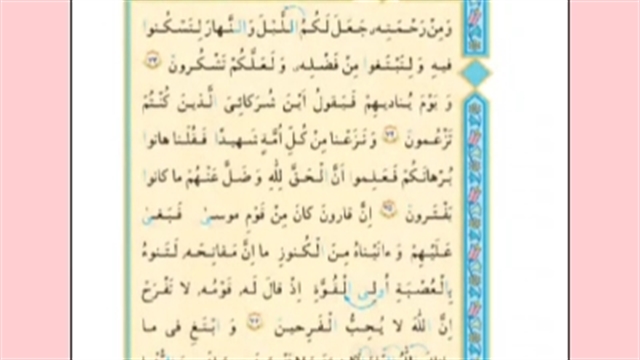 وَ مِنْ رَحْمَتِهِ جَعَلَ لَكُمُ اللَّيْلَ وَ النَّهارَ لِتَسْكُنوا
فيهِ وَ لِتَبْتَغوا مِنْ فَضْلِهِ وَ لَعَلَّكُمْ تَشْكُرونَ ﴿٧٣﴾
وَ يَوْمَ يُناديهِمْ فَيَقولُ اَيْنَ شُرَكائِيَ الَّذينَ كُنْتُمْ
تَزْعُمونَ ﴿٧٤﴾ وَ نَزَعْنا مِنْ كُلِّ اُمَّةٍ شَهيدًا فَقُلْنا هاتوا
بُرْهانَكُمْ فَعَلِموا اَنَّ الْحَقَّ لِلّٰهِ وَ ضَلَّ عَنْهُمْ ما كانوا
يَفْتَرونَ ﴿٧٥﴾ اِنَّ قارونَ كانَ مِنْ قَوْمِ موسىٰ فَبَغىٰ
عَلَيْهِمْ وَ ءاتَيْناهُ مِنَ الْكُنوزِ ما اِنَّ مَفاتِحَهُ لَتَنوءُ
بِالْعُصْبَةِ اُولِى الْقُوَّةِ اِذْ قالَ لَهُ قَوْمُهُ لا تَفْرَحْ
اِنَّ اللّٰهَ لا يُحِبُّ الْفَرِحينَ ﴿٧٦﴾ وَ ابْتَغِ فى ما